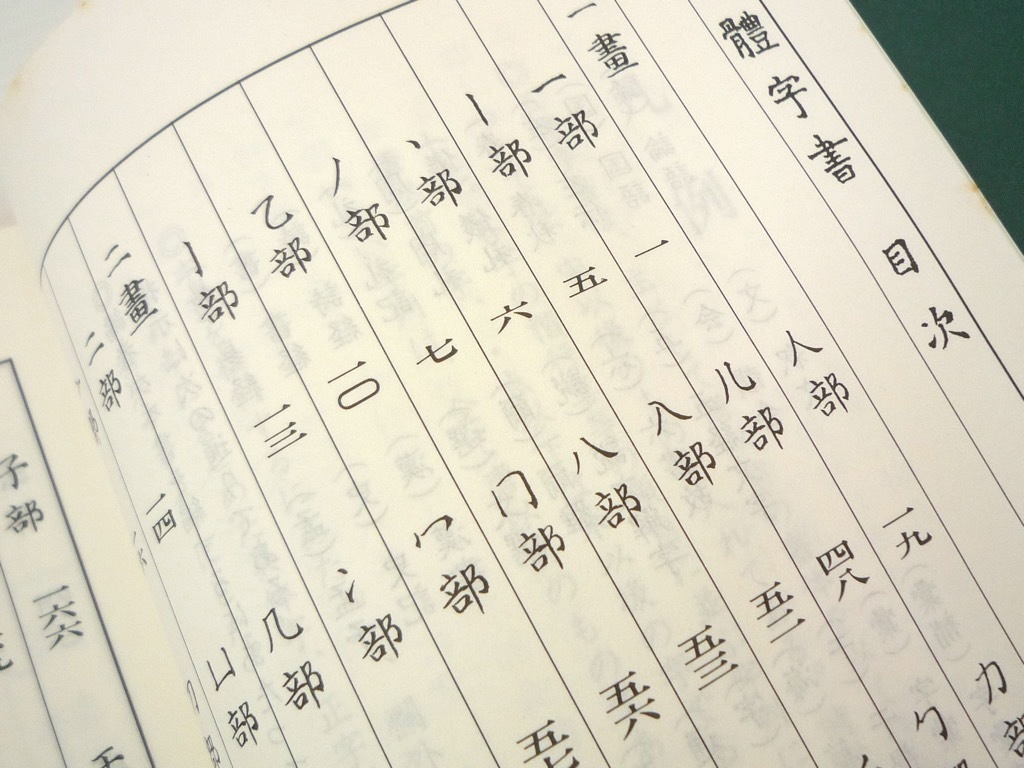 體字書 目次
一畫 人部 一九 力部
一部 一 儿部 四八 勹
丨部 五 入部 五二
丶部 六 八部 五三
丿部 七 冂部 五六
乙部 一〇 冖部 五七
亅部 一三 冫部
二畫 几部
二部 一四 凵部
子部 一六六